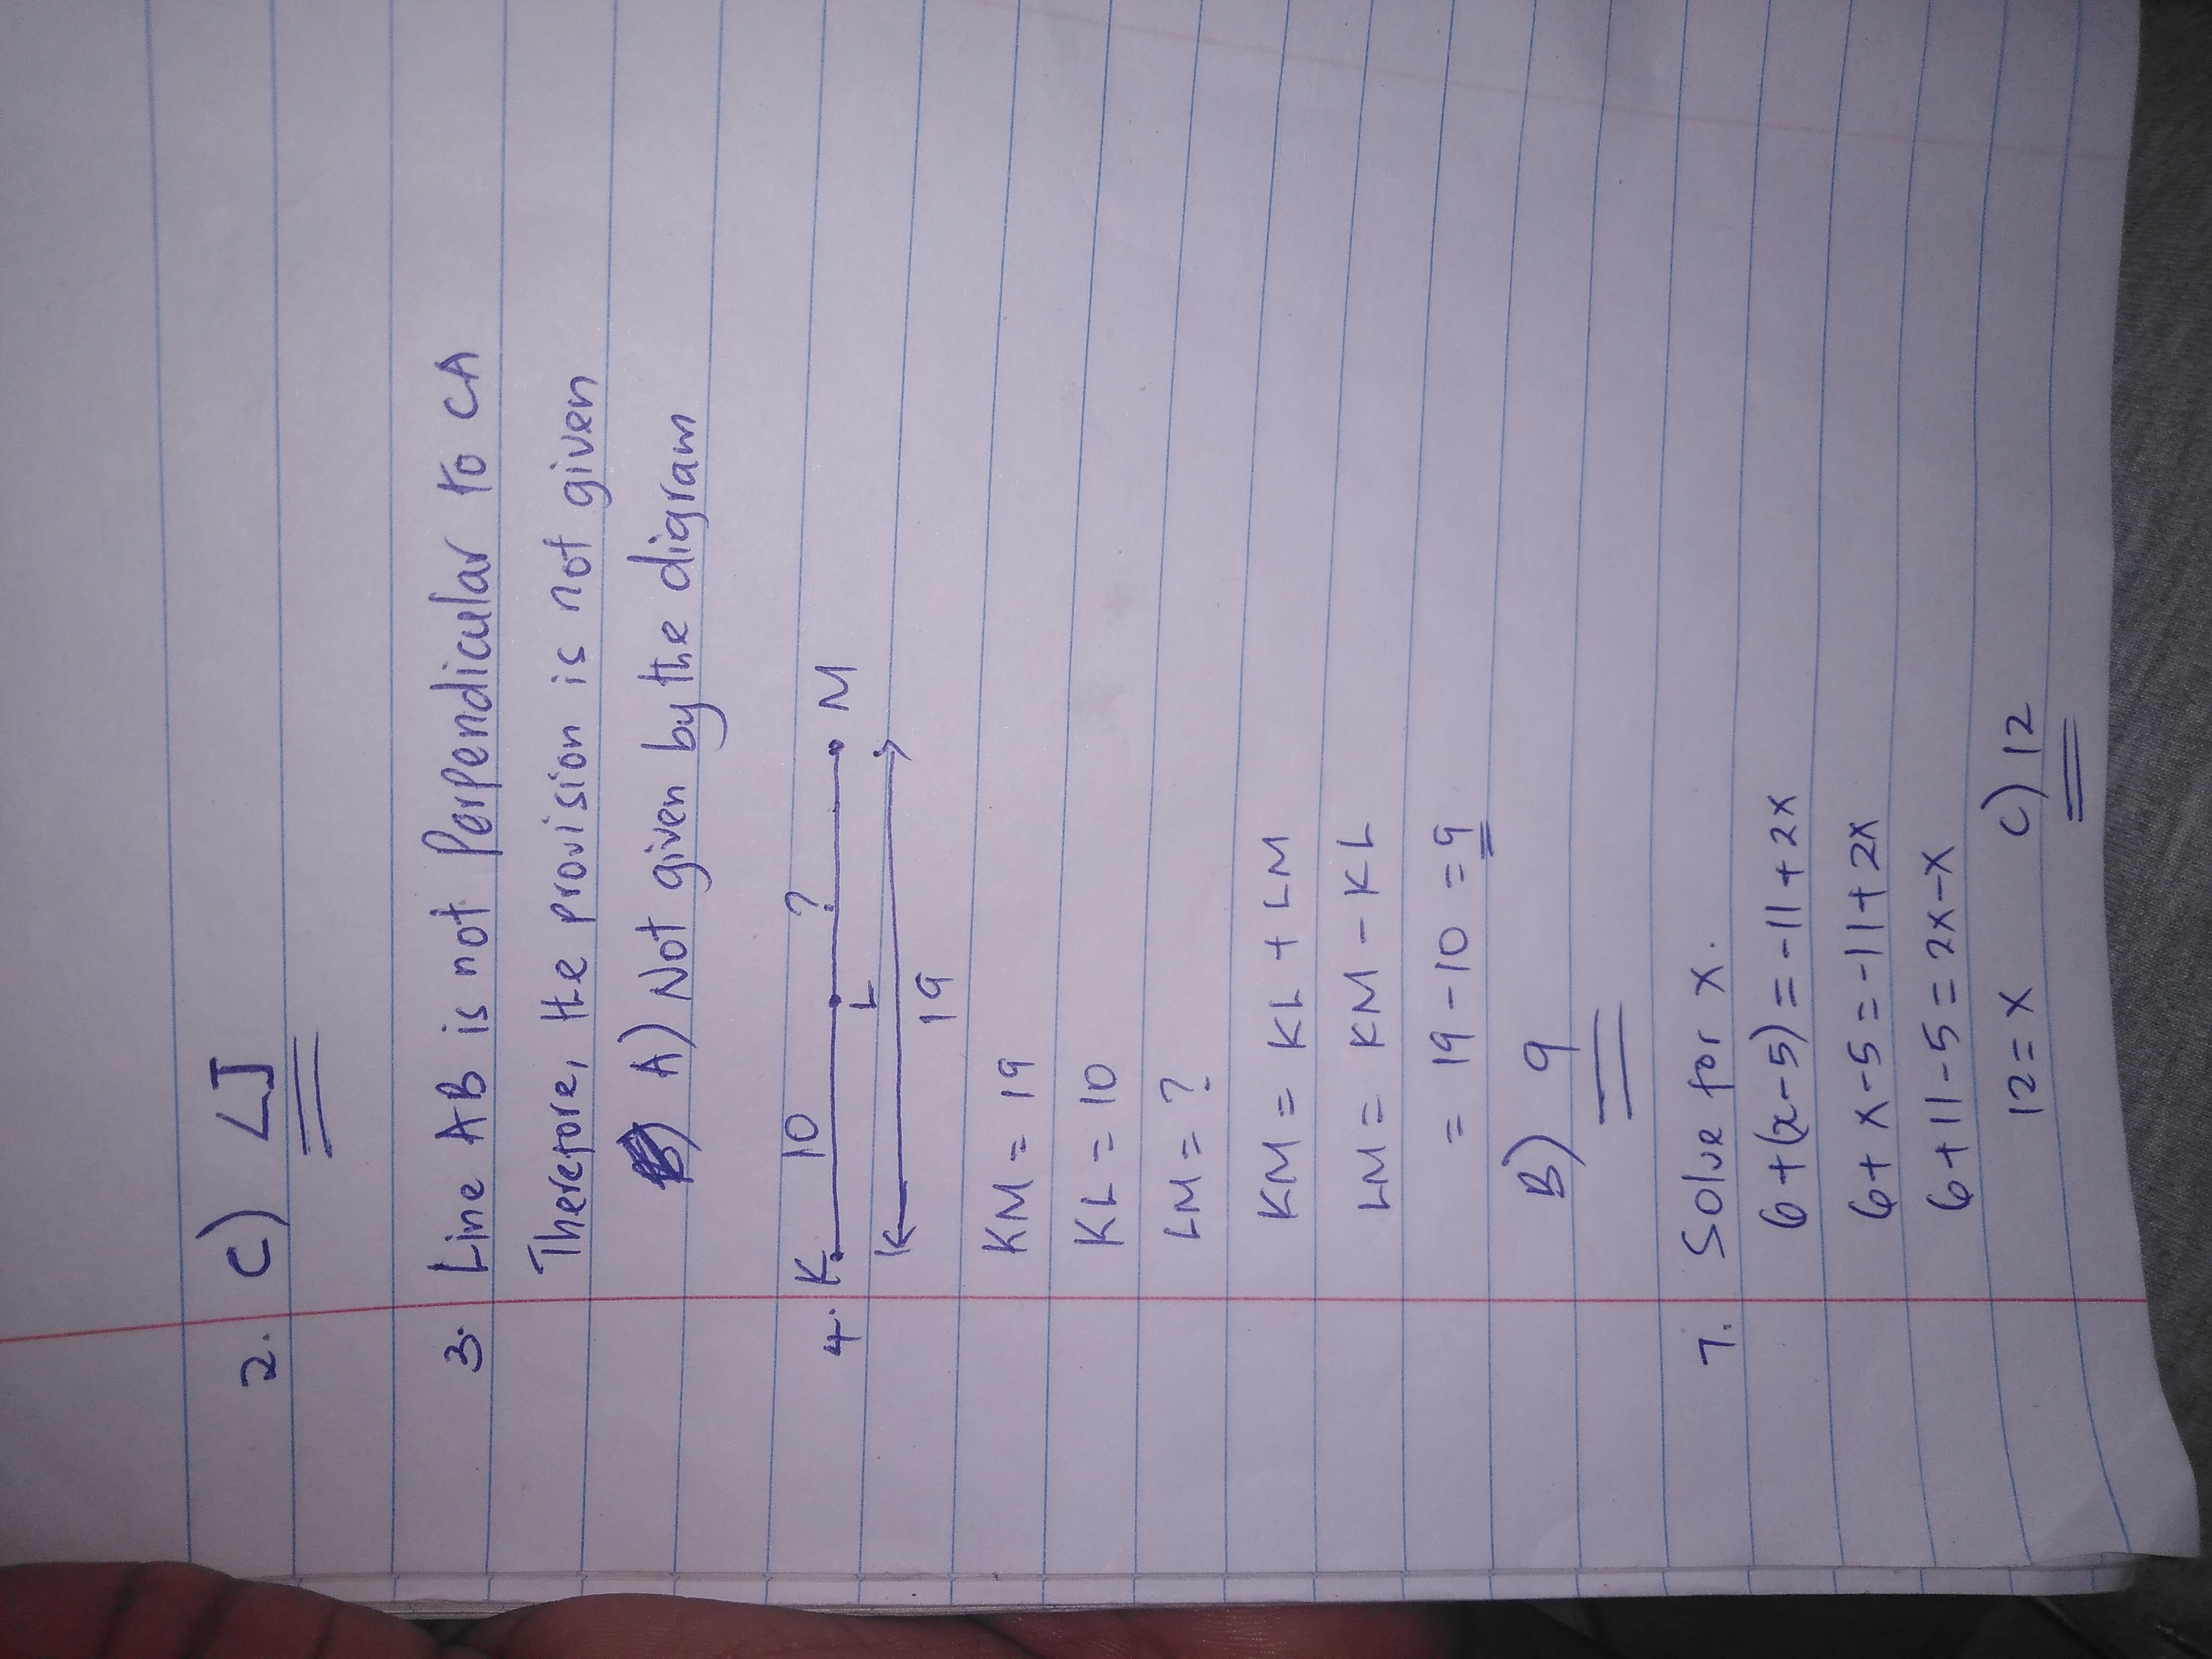 2. C) ∠J
3. Line AB is not Perpendicular to CA
Therefore, the provision is not given
A) Not given by the digram
4. K 10 ? M
L
19
KM = 19
KL = 10
LM = ?
KM = KL + LM
LM = KM - KL
= 19 - 10 = 9
B) 9
7. Solve for x.
6+(x-5) = -11+2x
6+x-5 = -11+2x
6+11-5 = 2x-x
12 = x C) 12